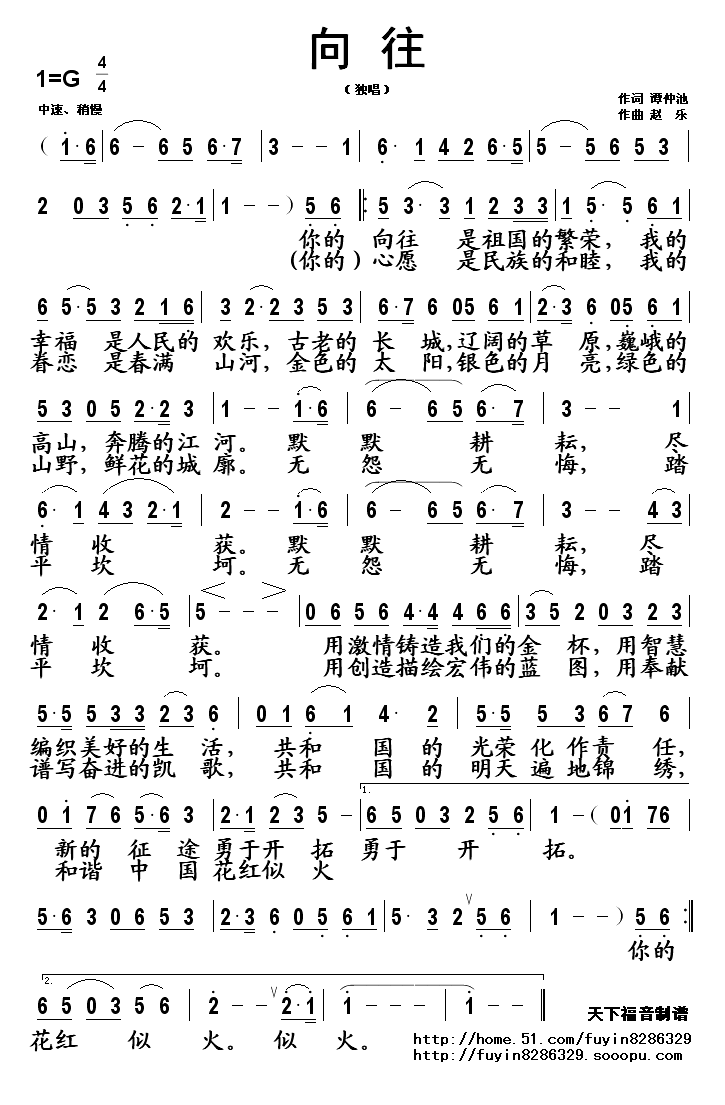 向 往
（独唱）
1=G 4/4
中速、稍慢
作词 谭仲池
作曲 赵 乐
( 1·6 | 6 – 6 5 6 6·7 | 3 – – 1 | 6· 1 4 2 6·5 | 5 – 5 6 5 3 |
2 0 3 5 6 2·1 | 1 – – ) 5 6 ‖: 5 3· 3 1 2 3 3 | 1 5· 5 6 1 |
你的 向往 是祖国的繁荣，我的
(你的）心愿 是民族的和睦，我的
6 5·5 3 2 1 6 | 3 2·2 3 5 3 | 6·7 6 05 6 1 | 2·3 6 05 6 1 |
幸福 是人民的 欢乐，古老的 长 城，辽阔的草 原，巍峨的
眷恋 是春满 山河，金色的 太 阳，银色的月 亮，绿色的
5 3 0 5 2·2 3 | 1 – – 1·6 | 6 – 6 5 6·7 | 3 – – 1 |
高山，奔腾的江 河。默 默 耕 耘，尽
山野，鲜花的城 廓。无 怨 无 悔，踏
6· 1 4 3 2·1 | 2 – – 1·6 | 6 – 6 5 6·7 | 3 – – 4 3 |
情 收 获。默 默 耕 耘，尽
平 坎 坷。无 怨 无 悔，踏
2· 1 2 6·5 | 5 – – – | 0 6 5 6 4·4 4 6 6 | 3 5 2 0 3 2 3 |
情 收 获。 用激情铸造我们的金 杯，用智慧
平 坎 坷。 用创造描绘宏伟的蓝 图，用奉献
5·5 5 3 3 2 3 6 | 0 1 6 1 4· 2 | 5·5 5 3 6 7 6 |
编织美好的生 活， 共和 国 的 光荣 化 作责 任，
谱写奋进的凯 歌， 共和 国 的 明天 遍 地锦 绣，
1.
0 1 7 6 5·6 3 | 2·1 2 3 5 – | 6 5 0 3 2 5 6 | 1 – ( 01 76 |
新的 征 途 勇于开 拓 勇于 开 拓。
和谐 中 国 花红似 火
5·6 3 0 6 5 3 | 2·3 6 0 5 6 1 | 5· 3 2 ∨ 5 6 | 1 – – ) 5 6 :‖
你的
2.
6 5 0 5 3 5 6 | 2 – – ∨ 2·1 | 1 – – – | 1 – – – ‖
花红 似 火。 似 火。
天下福音制谱
http://home.51.com/fuyin8286329
http://fuyin8286329.sooopu.com